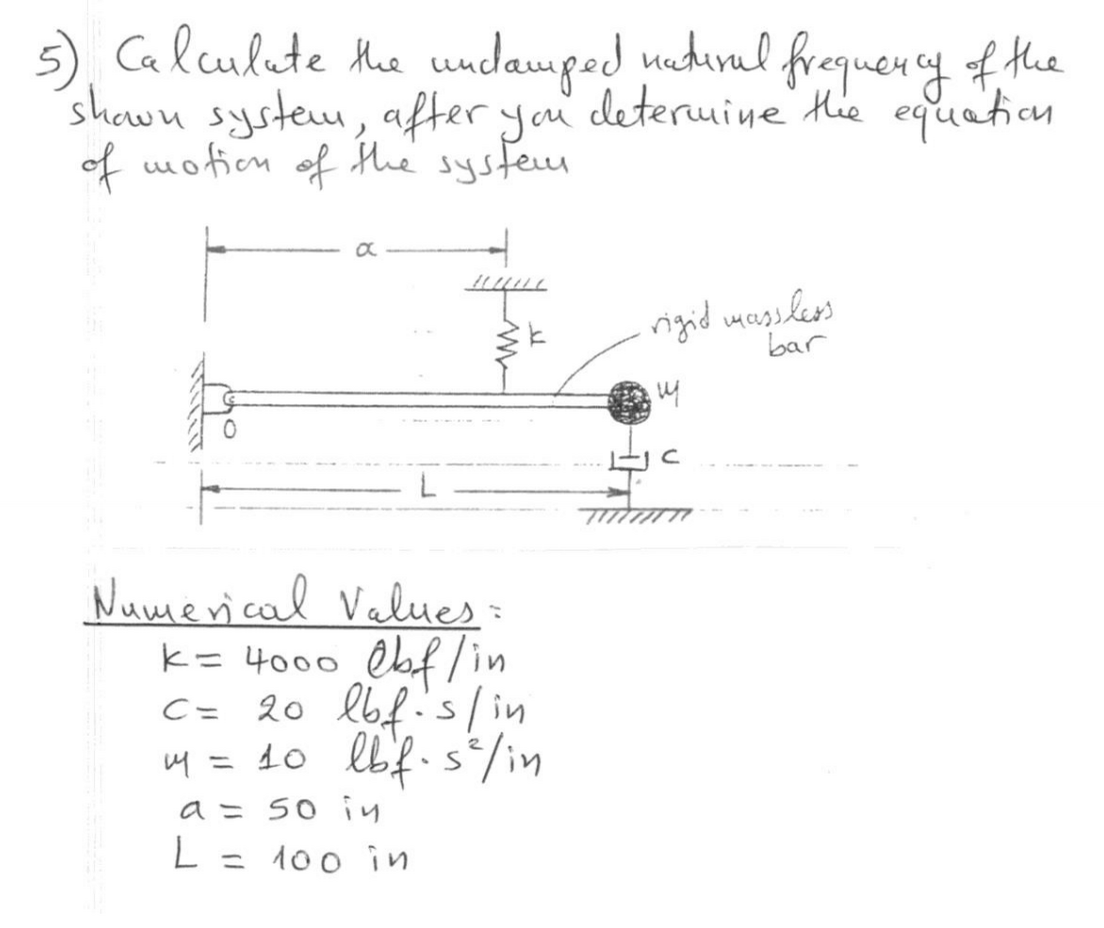 5) Calculate the undamped natural frequency of the
shown system, after you determine the equation
of motion of the system
a
k
rigid massless
bar
m
O
c
L
Numerical Values:
k = 4000 lbf/in
c = 20 lbf·s/in
m = 10 lbf·s²/in
a = 50 in
L = 100 in